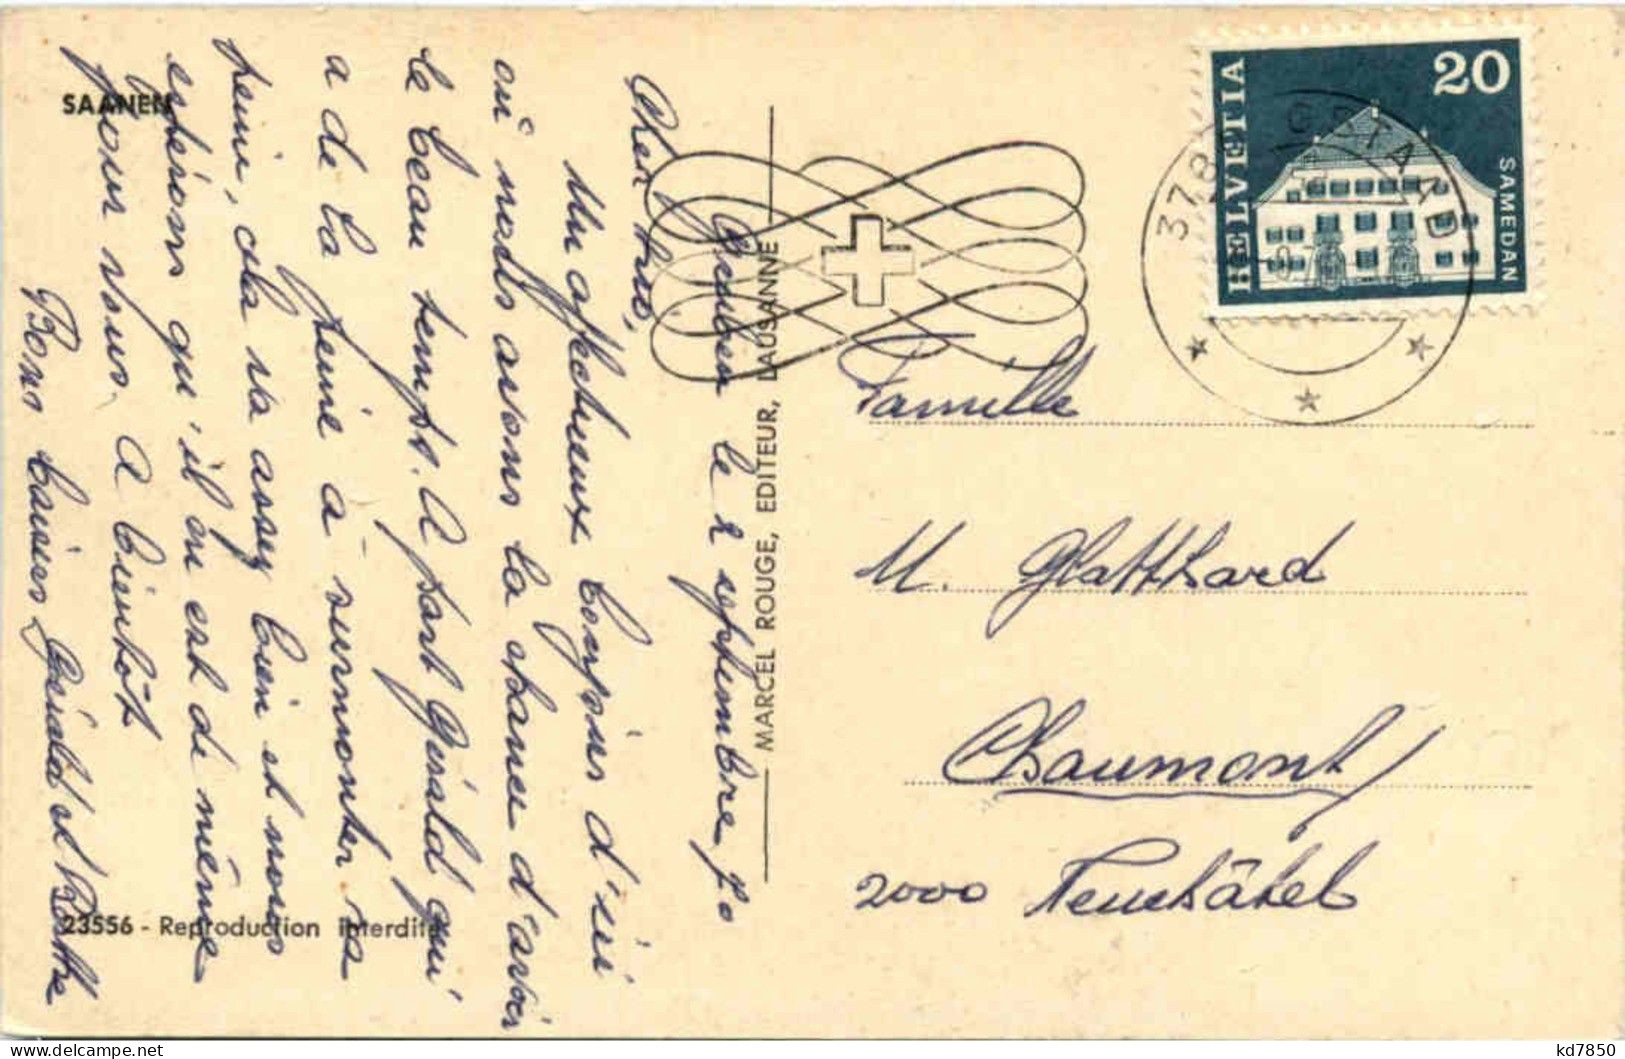 SAANEN
HELVETIA
20
SAMEDAN
GSTAAD
MARCEL ROUGE, EDITEUR, LAUSANNE
23556 - Reproduction interdite
le 2 septembre 70
Un affectueux bonjour d'ici
où nous avons la chance d'avoir
le beau temps. A part Gérald qui
a de la peine à surmonter sa
cela va assez bien et nous
espérons qu'il en est de même
pour vous. A bientôt
Bons baisers Gérald et
Famille
M. Glatthard
Chaumont
2000 Neuchâtel
kd7850